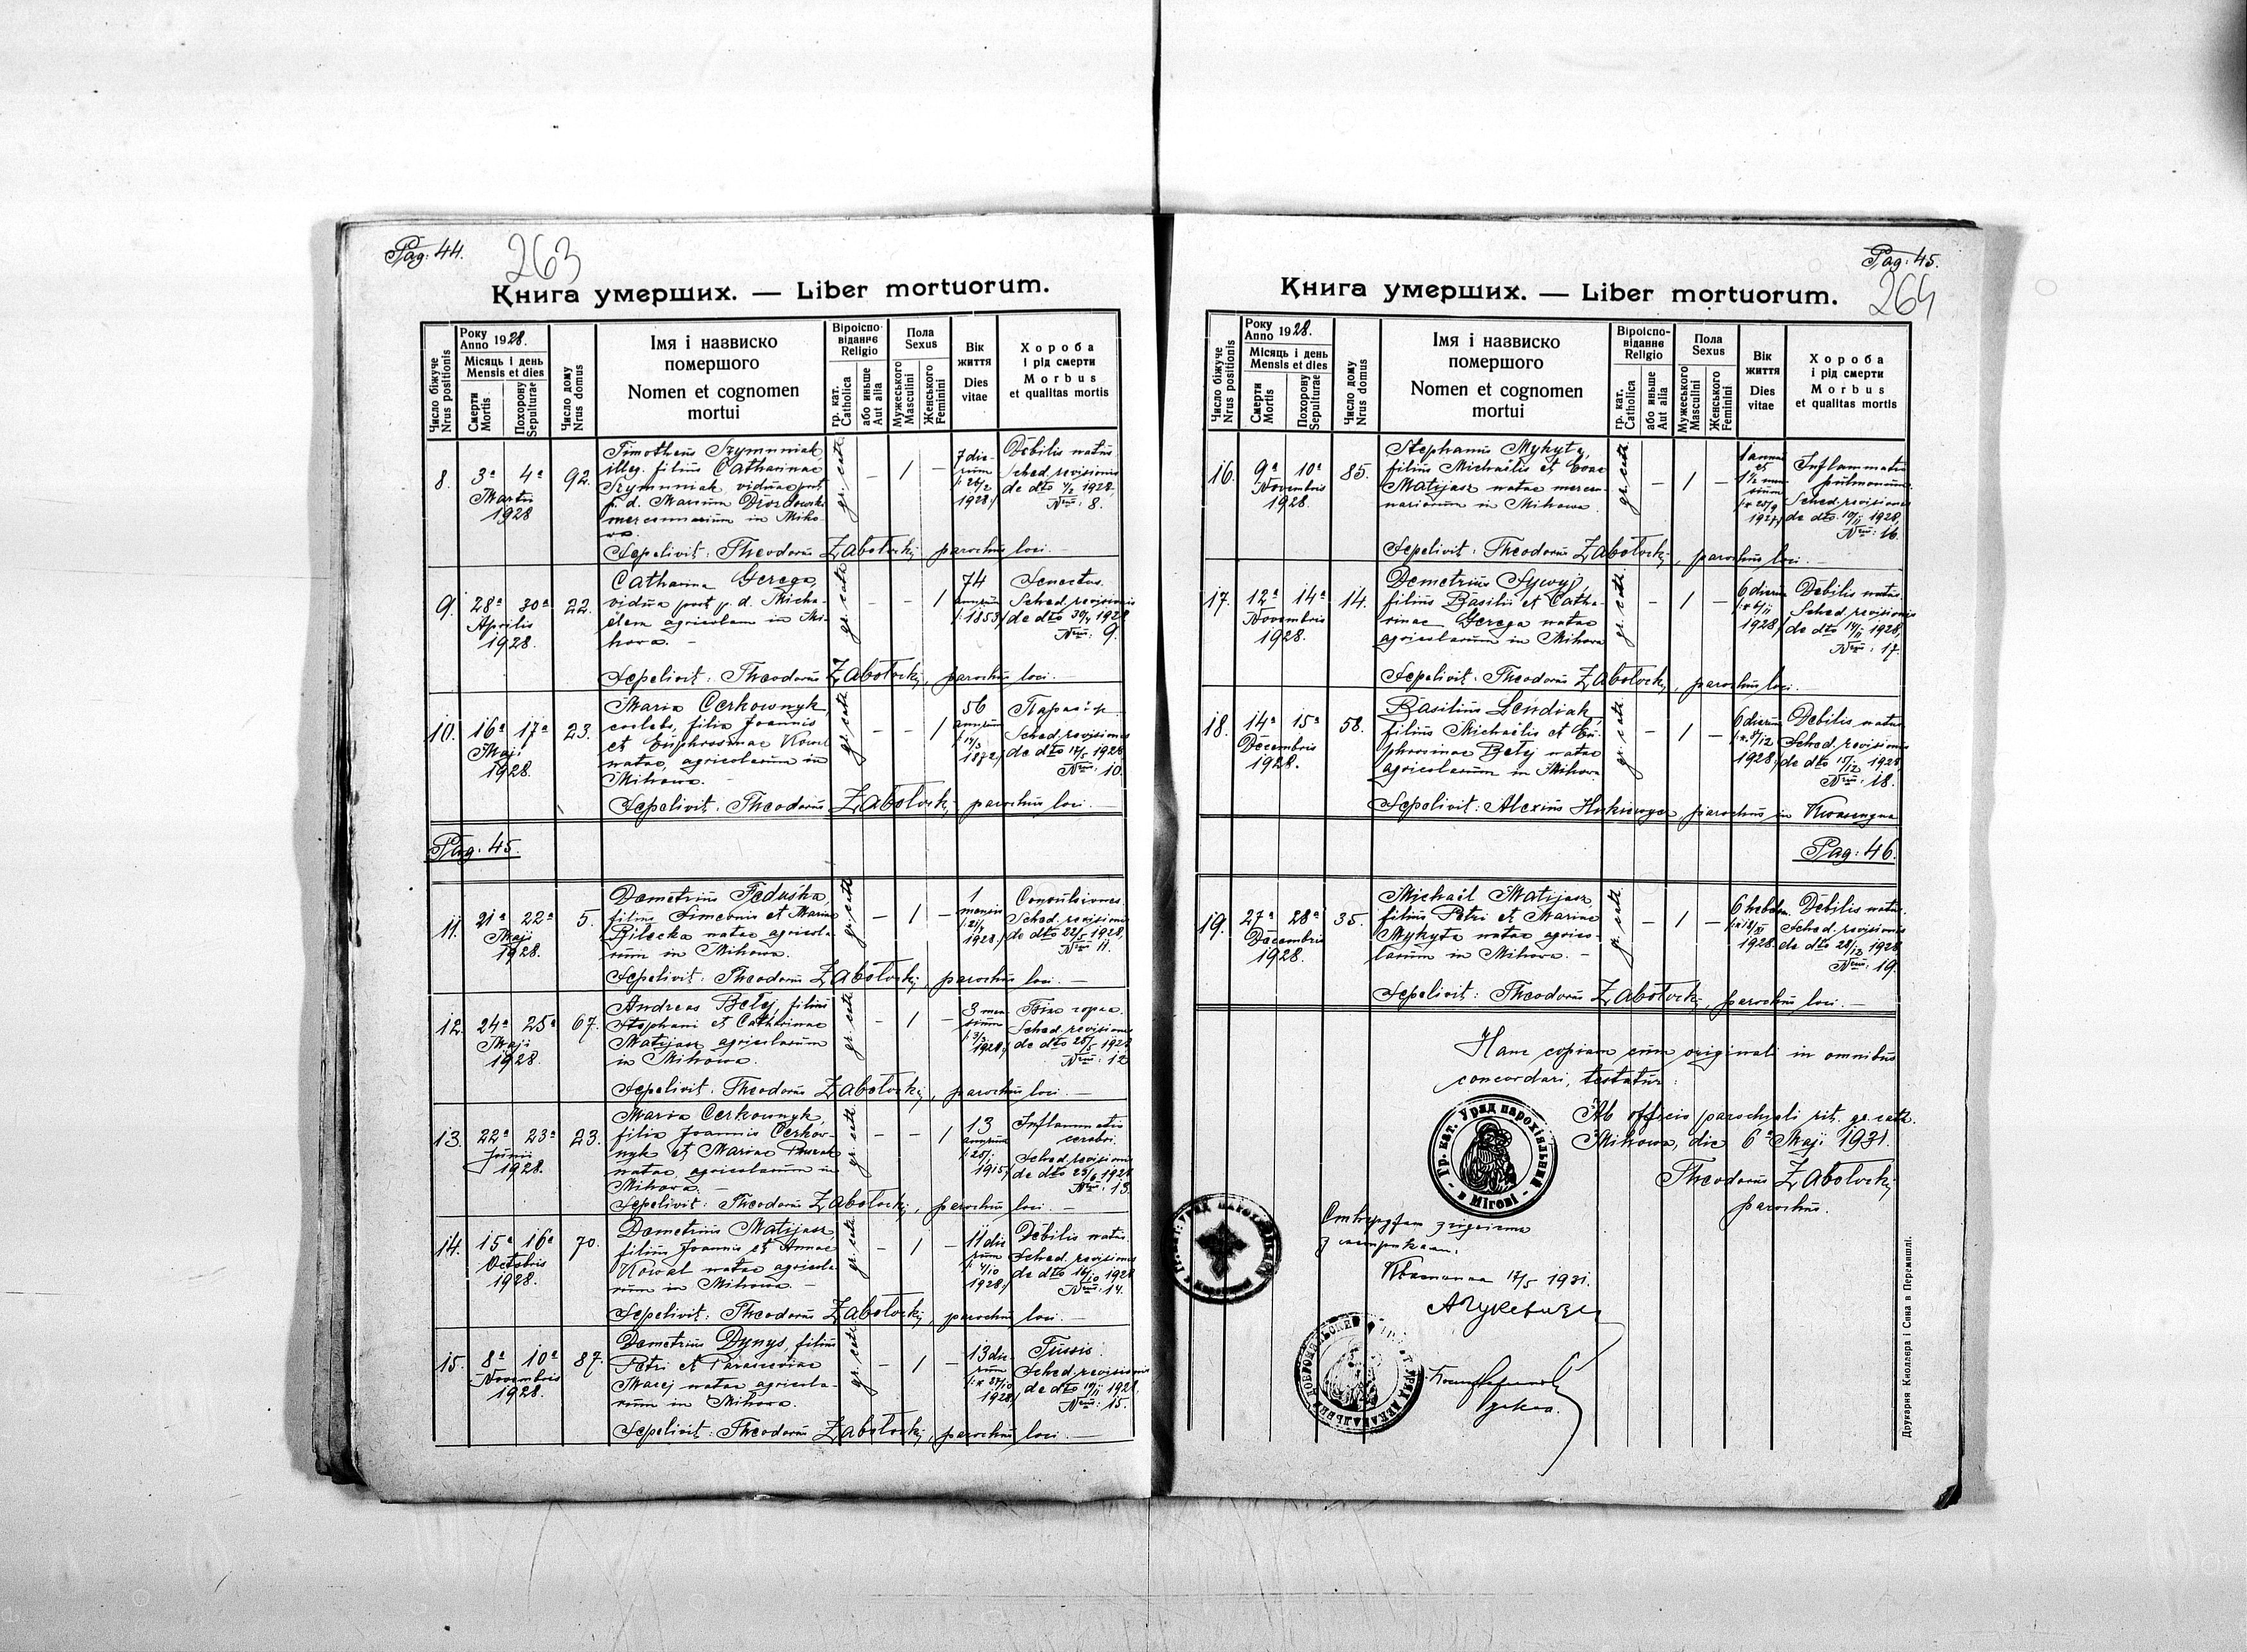 Pag: 44.
263
Книга умерших. — Liber mortuorum.
Число біжуче
Nrus positionis
Року
Anno 1928.
Місяць і день
Mensis et dies
Смерти
Mortis
Похорону
Sepulturae
Число дому
Nrus domus
Імя і назвиско
помершого
Nomen et cognomen
mortui
Віроіспо-
відание
Religio
гр. кат.
Catholica
або иньше
Aut alia
Пола
Sexus
Мужеського
Masculini
Женського
Feminini
Вік
життя
Dies
vitae
Хороба
і рід смерти
Morbus
et qualitas mortis
8. 3ª 4ª Martii 1928 92.
Timotheus Szymniak,
illeg. filius Catharinae
Szymniak viduae post
p. d. Marcum
mercennarium in Miho-
va.
gr. cath. — 1 —
7 die-
rum
1928
Debilis natus
Sched. revisionis
de dto 1928,
Num: 8.
Sepelivit: Theodorus Zabolockij parochus loci. —
9. 28ª 30ª Aprilis 1928. 22.
Catharina Gerega,
vidua post p. d. Micha-
elem agricolam in Mi-
hova. —
gr. cath. — — 1
74
annorum
1853
Senectus.
Sched. revisionis
de dto 30/4 1928
Num: 9.
Sepelivit: Theodorus Zabolockij, parochus loci. —
10. 16ª 17ª Maji 1928. 23.
Maria Cerkownyk,
coelebs, filia Joannis
et Euphrosinae Kowal
natae, agricolarum in
Mihowa. —
gr. cath. — — 1
56
annorum
1872
Параліж
Sched. revisionis
de dto 17/5 1928
Num: 10.
Sepelivit: Theodorus Zabolockij parochus loci. —
Pag: 45.
11. 21ª 22ª Maji 1928. 5.
Demetrius Feduśka,
filius Simeonis et Mariae
Bilecka natae agricola-
rum in Mihowa.
gr. cath. — 1 —
1
mensis
1928
Convulsiones.
Sched. revisionis
de dto 22/5 1928,
Num: 11.
Sepelivit: Theodorus Zabolockij, parochus loci. —
12. 24ª 25ª Maji 1928. 67.
Andreas Bełej, filius
Stephani et Catharinae
Matijasz agricolarum
in Mihowa.
gr. cath. — 1 —
3 men-
sium
1928
Sched. revisionis
de dto 25/5 1928
Num: 12
Sepelivit: Theodorus Zabolockij, parochus loci. —
13. 22ª 23ª Junii 1928. 23.
Maria Cerkownyk,
filia Joannis Cerkow-
nyk et Mariae
natae agricolarum in
Mihova. —
gr. cath. — — 1
13
annorum
1915
Inflammatio
cerebri.
Sched. revisionis
de dto 23/6 1928
Num: 13.
Sepelivit: Theodorus Zabolockij, parochus loci. —
14. 15ª 16ª Octobris 1928. 70.
Demetrius Matijasz,
filius Joannis et Annae
Kowal natae agricola-
rum in Mihowa. —
gr. cath. — 1 —
11 die-
rum
4/10
1928
Debilis natus.
Sched. revisionis
de dto 16/10 1928
Num: 14.
Sepelivit: Theodorus Zabolockij, parochus loci. —
15. 8ª 10ª Novembris 1928. 87.
Demetrius Dynys, filius
Petri et Parasceviae
Macej natae agricola-
rum in Mihova.
gr. cath. — 1 —
13 die-
rum
27/10
1928
Tussis.
Sched. revisionis
de dto 10/11 1928
Num: 15.
Sepelivit: Theodorus Zabolockij, parochus loci. —
Pag: 45.
264
Книга умерших. — Liber mortuorum.
Число біжуче
Nrus positionis
Року
Anno 1928.
Місяць і день
Mensis et dies
Смерти
Mortis
Похорону
Sepulturae
Число дому
Nrus domus
Імя і назвиско
помершого
Nomen et cognomen
mortui
Віроіспо-
відание
Religio
гр. кат.
Catholica
або иньше
Aut alia
Пола
Sexus
Мужеського
Masculini
Женського
Feminini
Вік
життя
Dies
vitae
Хороба
і рід смерти
Morbus
et qualitas mortis
16. 9ª 10ª Novembris 1928. 85.
Stephanus Mykyta,
filius Michaëlis et Evae
Matijasz natae mercen-
nariorum in Mihowa.
gr. cath. — 1 —
1 anni
et
1 1/2 men-
sium
1927
Inflammatio
pulmonum.
Sched. revisionis
de dto 10/11 1928,
Num: 16.
Sepelivit: Theodorus Zabolockij, parochus loci. —
17. 12ª 14ª Novembris 1928. 14.
Demetrius Sywyj,
filius Basilii et Catha-
rinae Gerega natae
agricolarum in Mihova
gr. cath. — 1 —
6 dierum
6/11
1928
Debilis natus
Sched. revisionis
de dto 14/11 1928,
Num: 17.
Sepelivit: Theodorus Zabolockij, parochus loci. —
18. 14ª 15ª Decembris 1928. 58.
Basilius Lendiak,
filius Michaëlis et Eu-
phrosinae Bełej natae
agricolarum in Mihova
gr. cath. — 1 —
6 dierum
8/12
1928
Debilis natus
Sched. revisionis
de dto 15/12 1928
Num: 18.
Sepelivit: Alexius parochus in
Pag: 46.
19. 27ª 28ª Decembris 1928. 35.
Michaël Matijasz,
filius Petri et Mariae
Mykyta natae agrico-
larum in Mihova. —
gr. cath. — 1 —
6 hebdom.
1928
Debilis natus.
Sched. revisionis
de dto 28/12 1928
Num: 19.
Sepelivit: Theodorus Zabolockij, parochus loci. —
Hanc copiam cum originali in omnibus
concordari, testatur:
Ab officio parochiali rit. gr. cath.
Mihowa, die 6ª Maji 1931.
Theodorus Zabolockij
parochus.
Гр. кат. Уряд парохіяльний
в Мігові
17/5 1931.
Друкарня Кноллєра і Сина в Перемишлі.